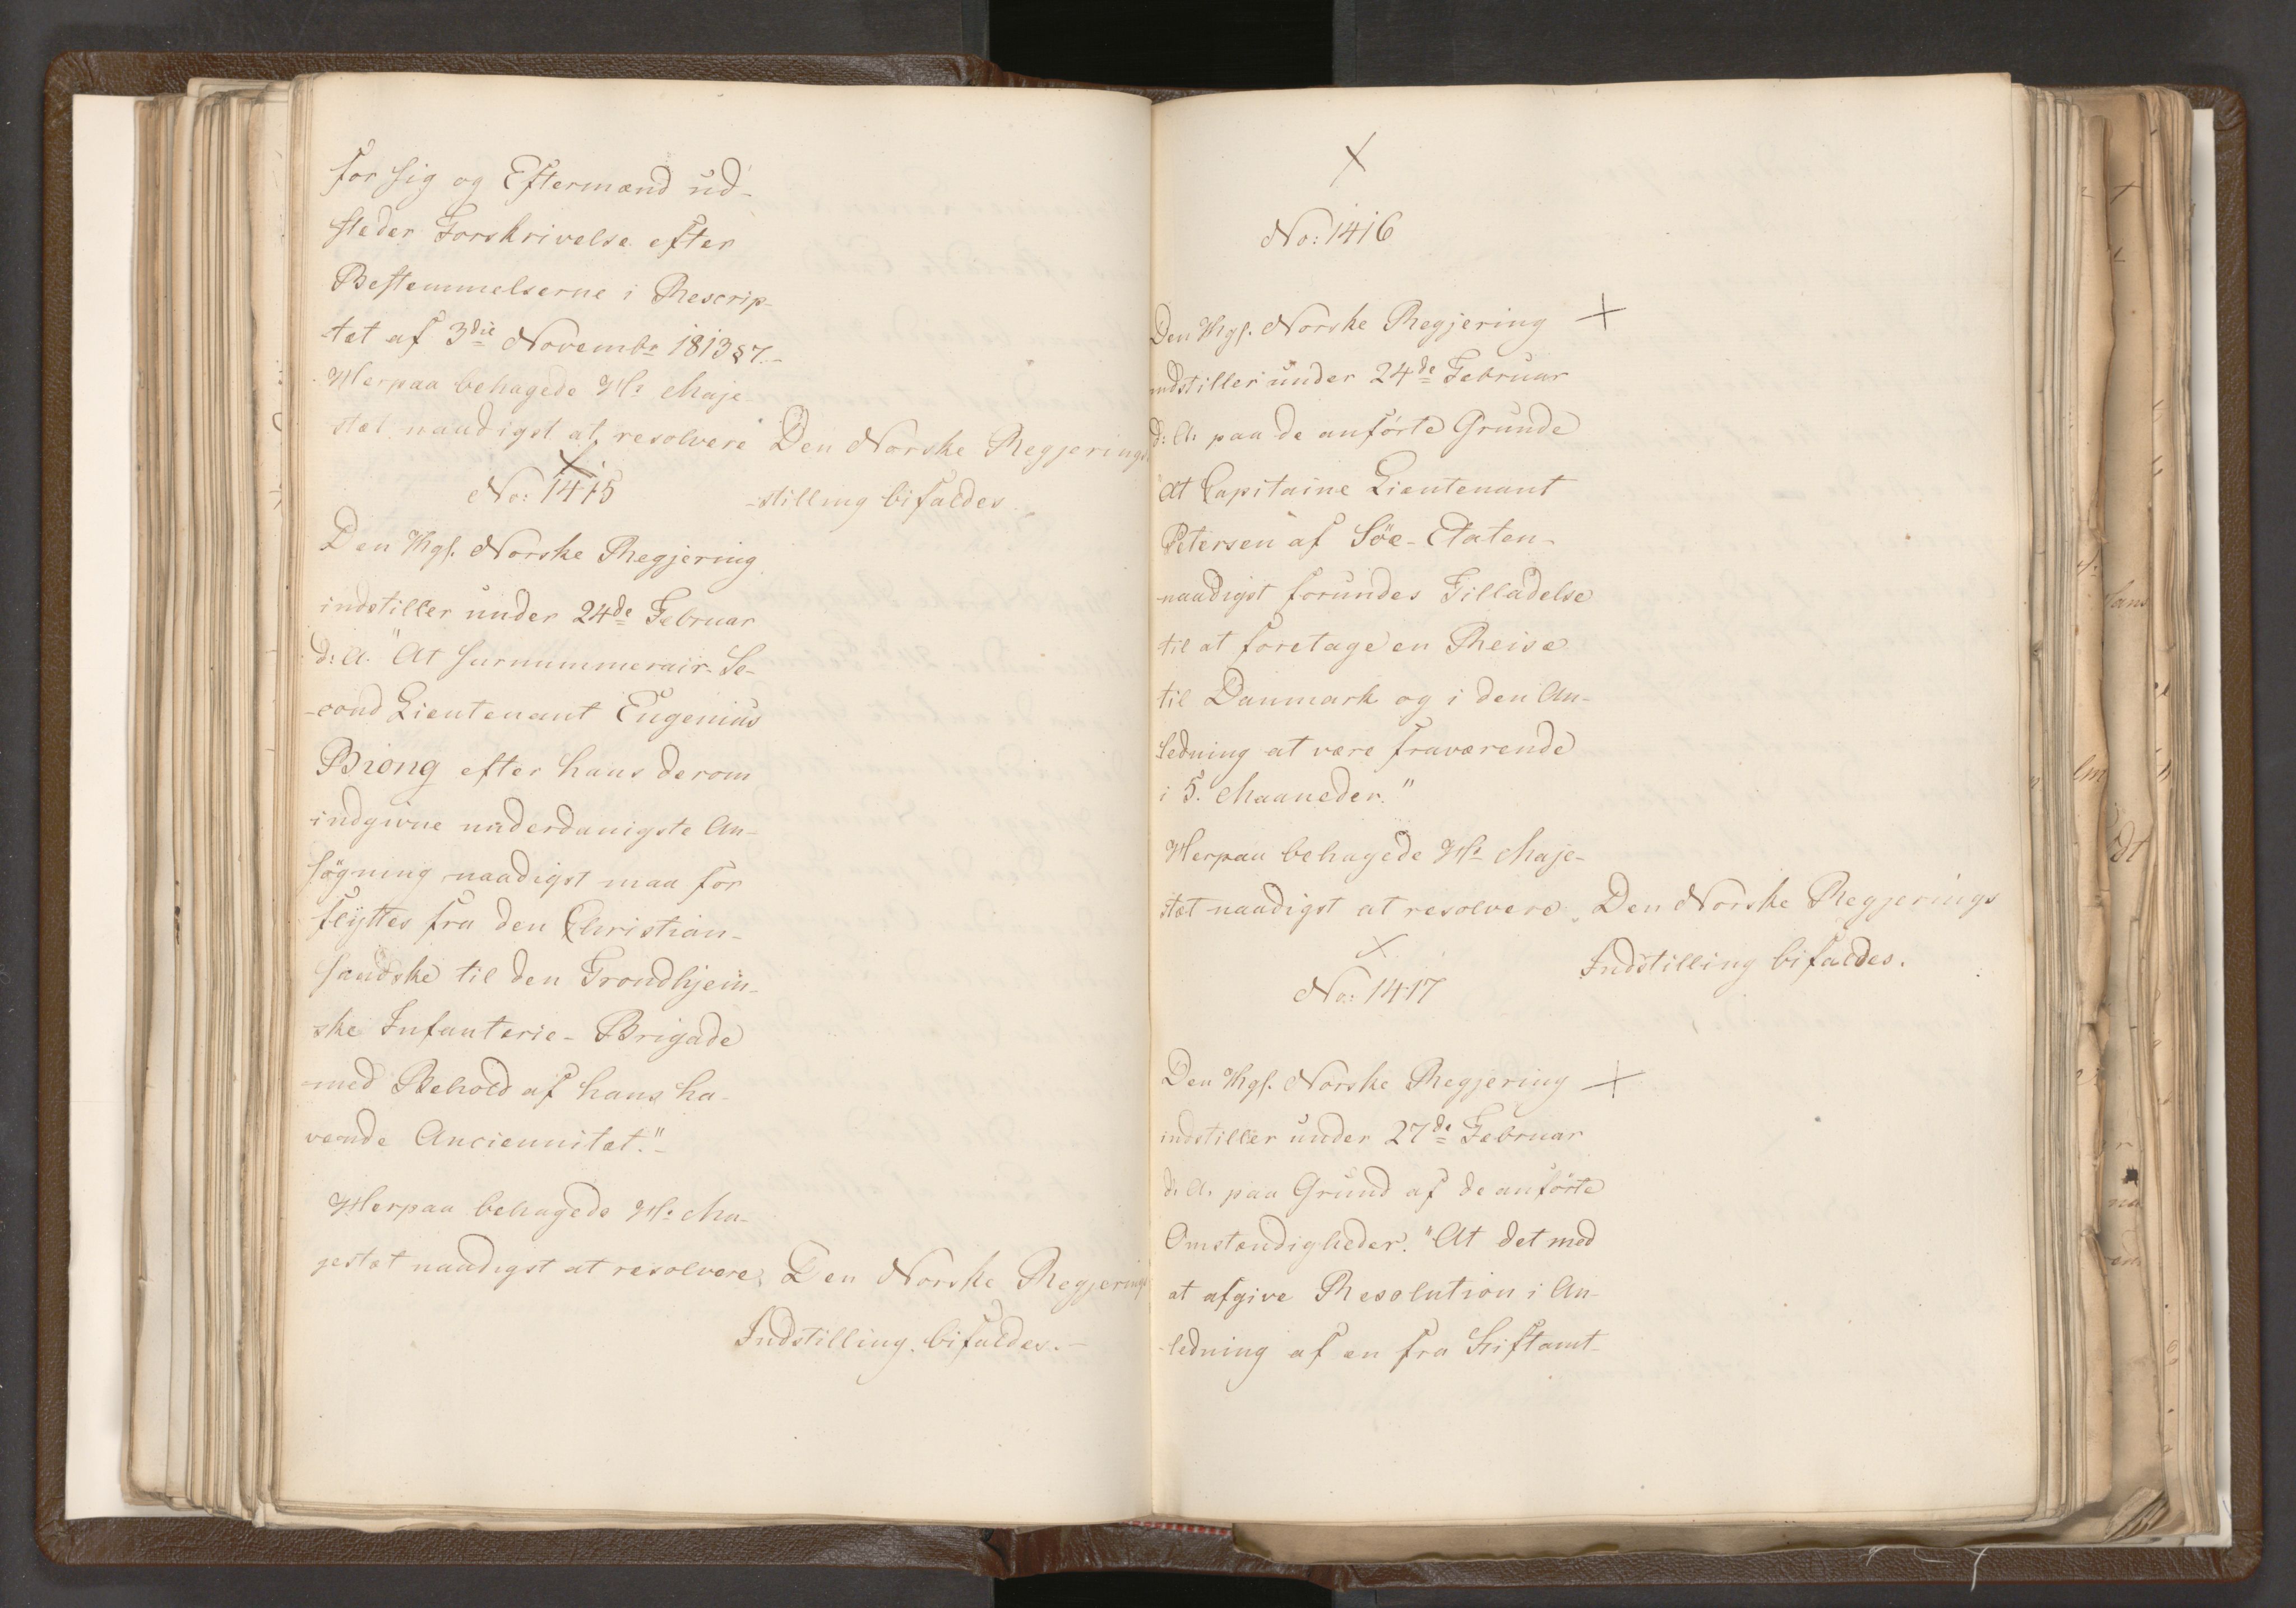 for sig og Eftermænd ud-
steder Forskrivelse efter
Bestemmelserne i Rescrip-
-tet af 3die Novembr 1813 § 7.-
Herpaa behagede Hs Maje-
stæt naadigst at resolvere Den Norske Regjerings
-stilling bifaldes.
X
No: 1415
Den Kgl. Norske Regjering
indstiller under 24de Februar
d: A. "At surnummerair Se-
-cond Lieutenant Eugenius
Biong efter hans derom
indgivne underdanigste An-
søgning naadigst maa for
flyttes fra den Christian-
sandske til den Trondhjem-
ske Infanterie-Brigade
med Behold af hans ha-
vende Anciennitet."-
Herpaa behagede Hs Ma-
jestæt naadigst at resolvere: Den Norske Regjerings
Indstilling bifaldes.-
X
No: 1416
Den Kgl. Norske Regjering X
indstiller under 24de Februar
d: A. paa de anførte Grunde
"At Capitaine Lieutenant
Petersen af Söe-Etaten-
naadigst forundes Tilladelse
til at foretage en Reise
til Danmark og i den An-
ledning at være fraværende
i 5. Maaneder."
Herpaa behagede Hs Maje-
stæt naadigst at resolvere. Den Norske Regjerings
Indstilling bifaldes.
X
No: 1417
Den Kgl. Norske Regjering X
indstiller under 27de Februar
d: A. paa Grund af de anførte
Omstændigheder. "At det med
at afgive Resolution i An-
-ledning af en fra Stiftamt-